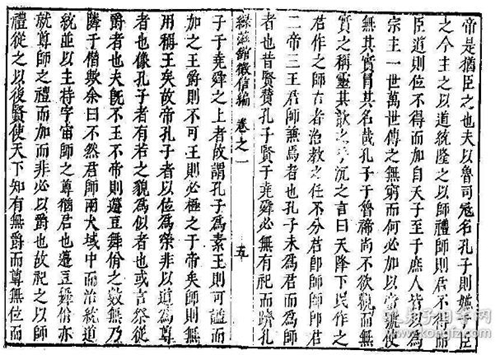 帝是猶臣之也夫以魯司冦名孔子則嫌於臣
之今主之以道統隆之以師禮師則君不得而
臣道則位不得而加自天子至于庶人皆得而
宗主一世萬世傳之無窮而何必加以帝無位
無其實冒其名哉孔子于魯禘尚不欲觀而無
質之稱靈其歆之乎沉之言曰天降下民作之
君作之師古者治教之任不分君即師師即君
二帝三王君師兼焉者也孔子未為君而為師
者也昔賢賛孔子賢于堯舜必無有祀而躋孔
徵信編 卷之一 五
子于堯舜之上者故謂孔子為素王則可謚而
加之王爵則不可王則必極之于帝矣師則無
用稱王矣故帝孔子者以位為榮非以道為尊
者也像孔子者有若之貌為似者也或言祭從
爵者也夫旣不王不帝則籩豆舞佾之數無乃
隣于僭歟余曰不然君師兩大域中而治統道
統並以主持宇宙師之尊猶君也籩豆舞佾亦
就尊師之禮而加而非必以爵也故祀之以師
禮從之以後賢使天下知有無爵而尊無位而